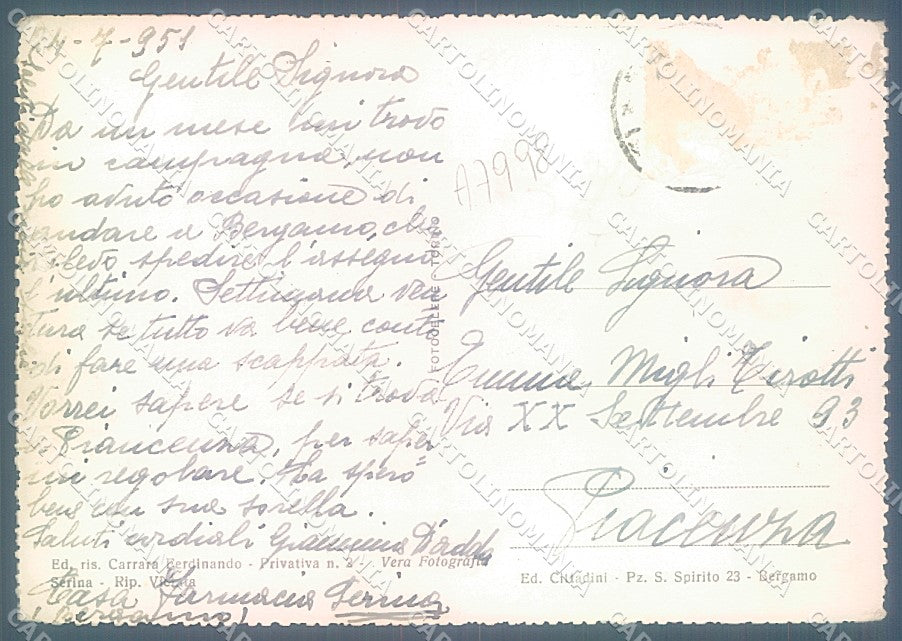 24-7-951
Gentile Signora
Da un mese mi trovo
in campagna, non
ho avuto occasione di
andare a Bergamo, che
devo spedire l'assegno
l'ultimo. Settimana ven
tura se tutto va bene conto
di fare una scappata.
Vorrei sapere se si trova
a Piancenza, per saper
mi regolare. La spero
bene con sua sorella.
Saluti cordiali Giannina Dadda
Casa Farmacia Serina
(Bergamo)
A7998
Gentile Signora
Migli Tirotti
Via XX Settembre 93
Piacenza
FOTOCELERE TORINO
Ed. ris. Carrara Ferdinando - Privativa n. 2 - Vera Fotografia
Serina - Rip. Vietata
Ed. Cittadini - Pz. S. Spirito 23 - Bergamo
CARTOLINOMANIA